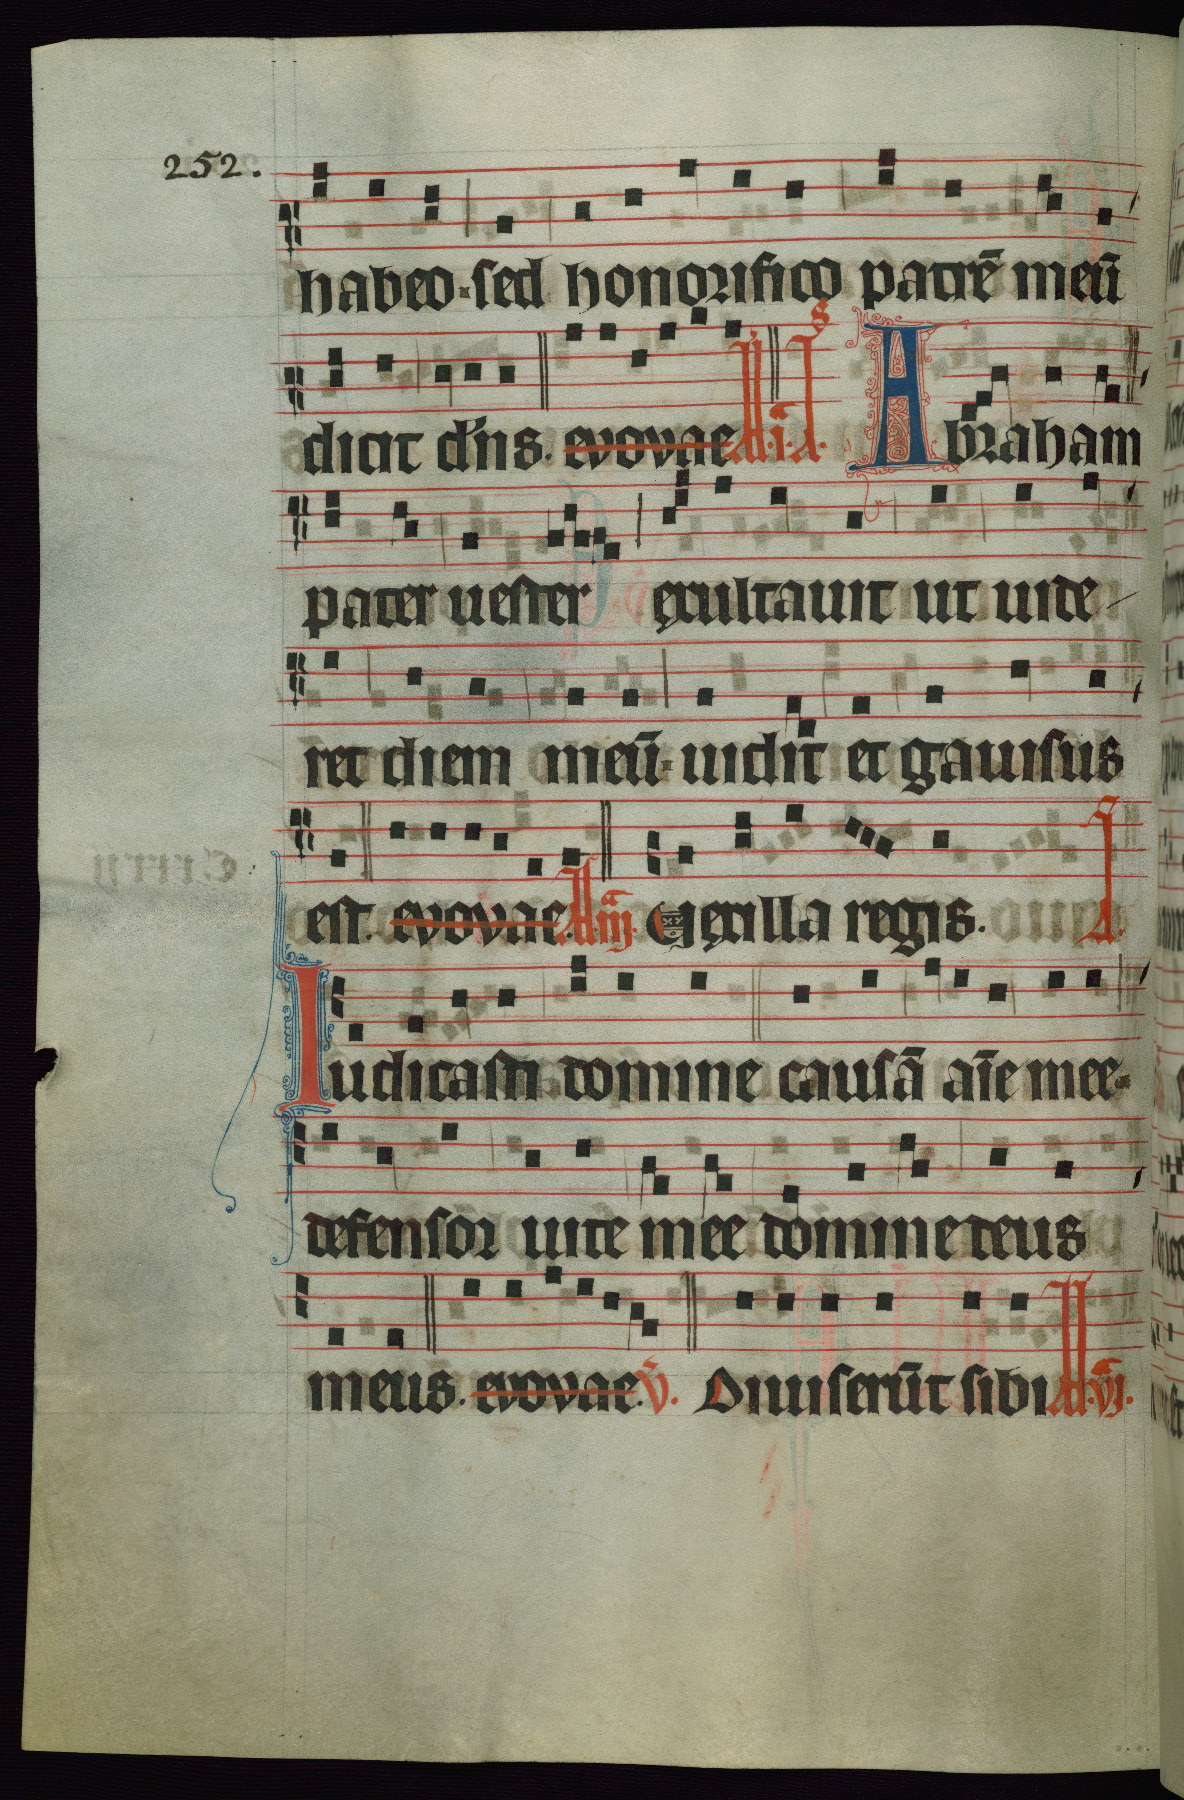 252.
habeo·sed honorifico patrē meū
dicit dn̄s. euouae A·i·A· Abraham
pater uester exultauit ut uide-
ret diem meū· uidit et gauisus
est. euouae. A·iij· Uexilla regis. A·
Iudicasti domine causā aīe mee·
defensor uite mee domine deus
meus. euouae. V̄. Diuiserūt sibi A·vj·